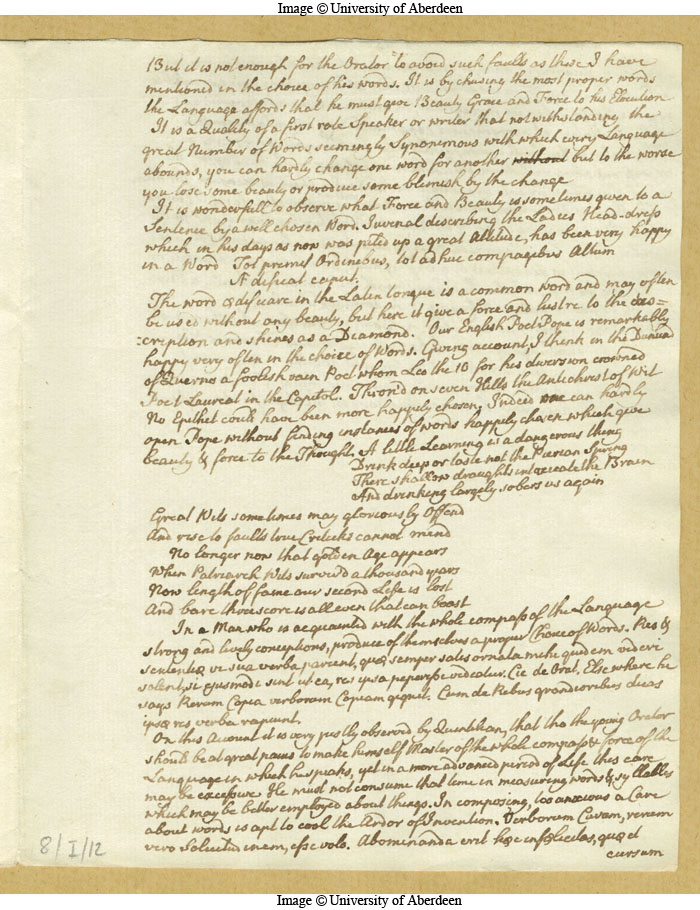 Image © University of Aberdeen
But it is not enough for the Orator to avoid such faults as these I have
mentioned in the choice of his words. It is by chusing the most proper words
the Language affords that he must give Beauty Grace and Force to his Elocution
It is a Quality of a first rate Speaker or writer that notwithstanding the
great Number of Words seemingly Synonimous with which every Language
abounds, you can hardly change one word for another without but to the worse
you lose some beauty or produce some blemish by the change
It is wonderfull to observe what Force and Beauty is sometimes given to a
Sentence by a well chosen Word. Juvenal describing the Ladies Head-dress
which in his days as now was piled up a great Altitude, has been very happy
in a Word Tot premit Ordinibus, tot adhuc compagibus Altum
Ædificat caput.
The word ædificare in the Latin tongue is a common word and may often
be used without any beauty, but here it give a force and lustre to the des=
=cription and shines as a Diamond. Our English Poet Pope is remarkably
happy very often in the choice of Words. Giving account, I think in the Dunciad
of Querno a foolish vain Poet whom Leo the 10 for his diversion crowned
Poet Laureat in the Capitol. Thron'd on seven Hills the Antichrist of Wit
No Epithet could have been more happily chosen. Indeed one can hardly
open Pope without finding instances of words happily chosen which give
beauty & force to the Thought. A little Learning is a dangerous thing
Drink deep or taste not the Pierian Spring
There shallow draughts intoxicate the Brain
And drinking largely sobers us again
Great Wits sometimes may gloriously Offend
And rise to faults true Criticks cannot mend
No longer now that golden Age appears
When Patriarch Wits surviv'd a thousand years
Now length of fame our second Life is lost
And bare threescore is all even that can boast
In a Man who is acquainted with the whole compass of the Language
strong and lively conceptions, produce of themselves a proper Choice of Words. Res &
sententiæ vi sua verba parient, quæ semper satis ornata mihi quidem videri
solent, si ejusmodi sint ut ea, res ipsa peperisse videatur. Cic de Orat. Elsewhere he
says Rerum Copia verborum Copiam gignit. Cum de Rebus grandioribus dicas
ipsæ res verba rapiunt.
On this Account it is very justly observed by Quintilian, that tho the young Orator
should be at great pains to make himself Master of the whole compass & force of the
Language in which he speaks, yet in a more advanced period of Life this care
may be excessive. He must not consume that time in measuring words & syllables
which may be better employed about things. In composing, too anxious a Care
about words is apt to cool the Ardor of Invention. Verborum Curam, rerum
vero Solicitudinem, esse volo. Abominanda erit hæc infælicitas, quæ et
cursum
8/I/12
Image © University of Aberdeen